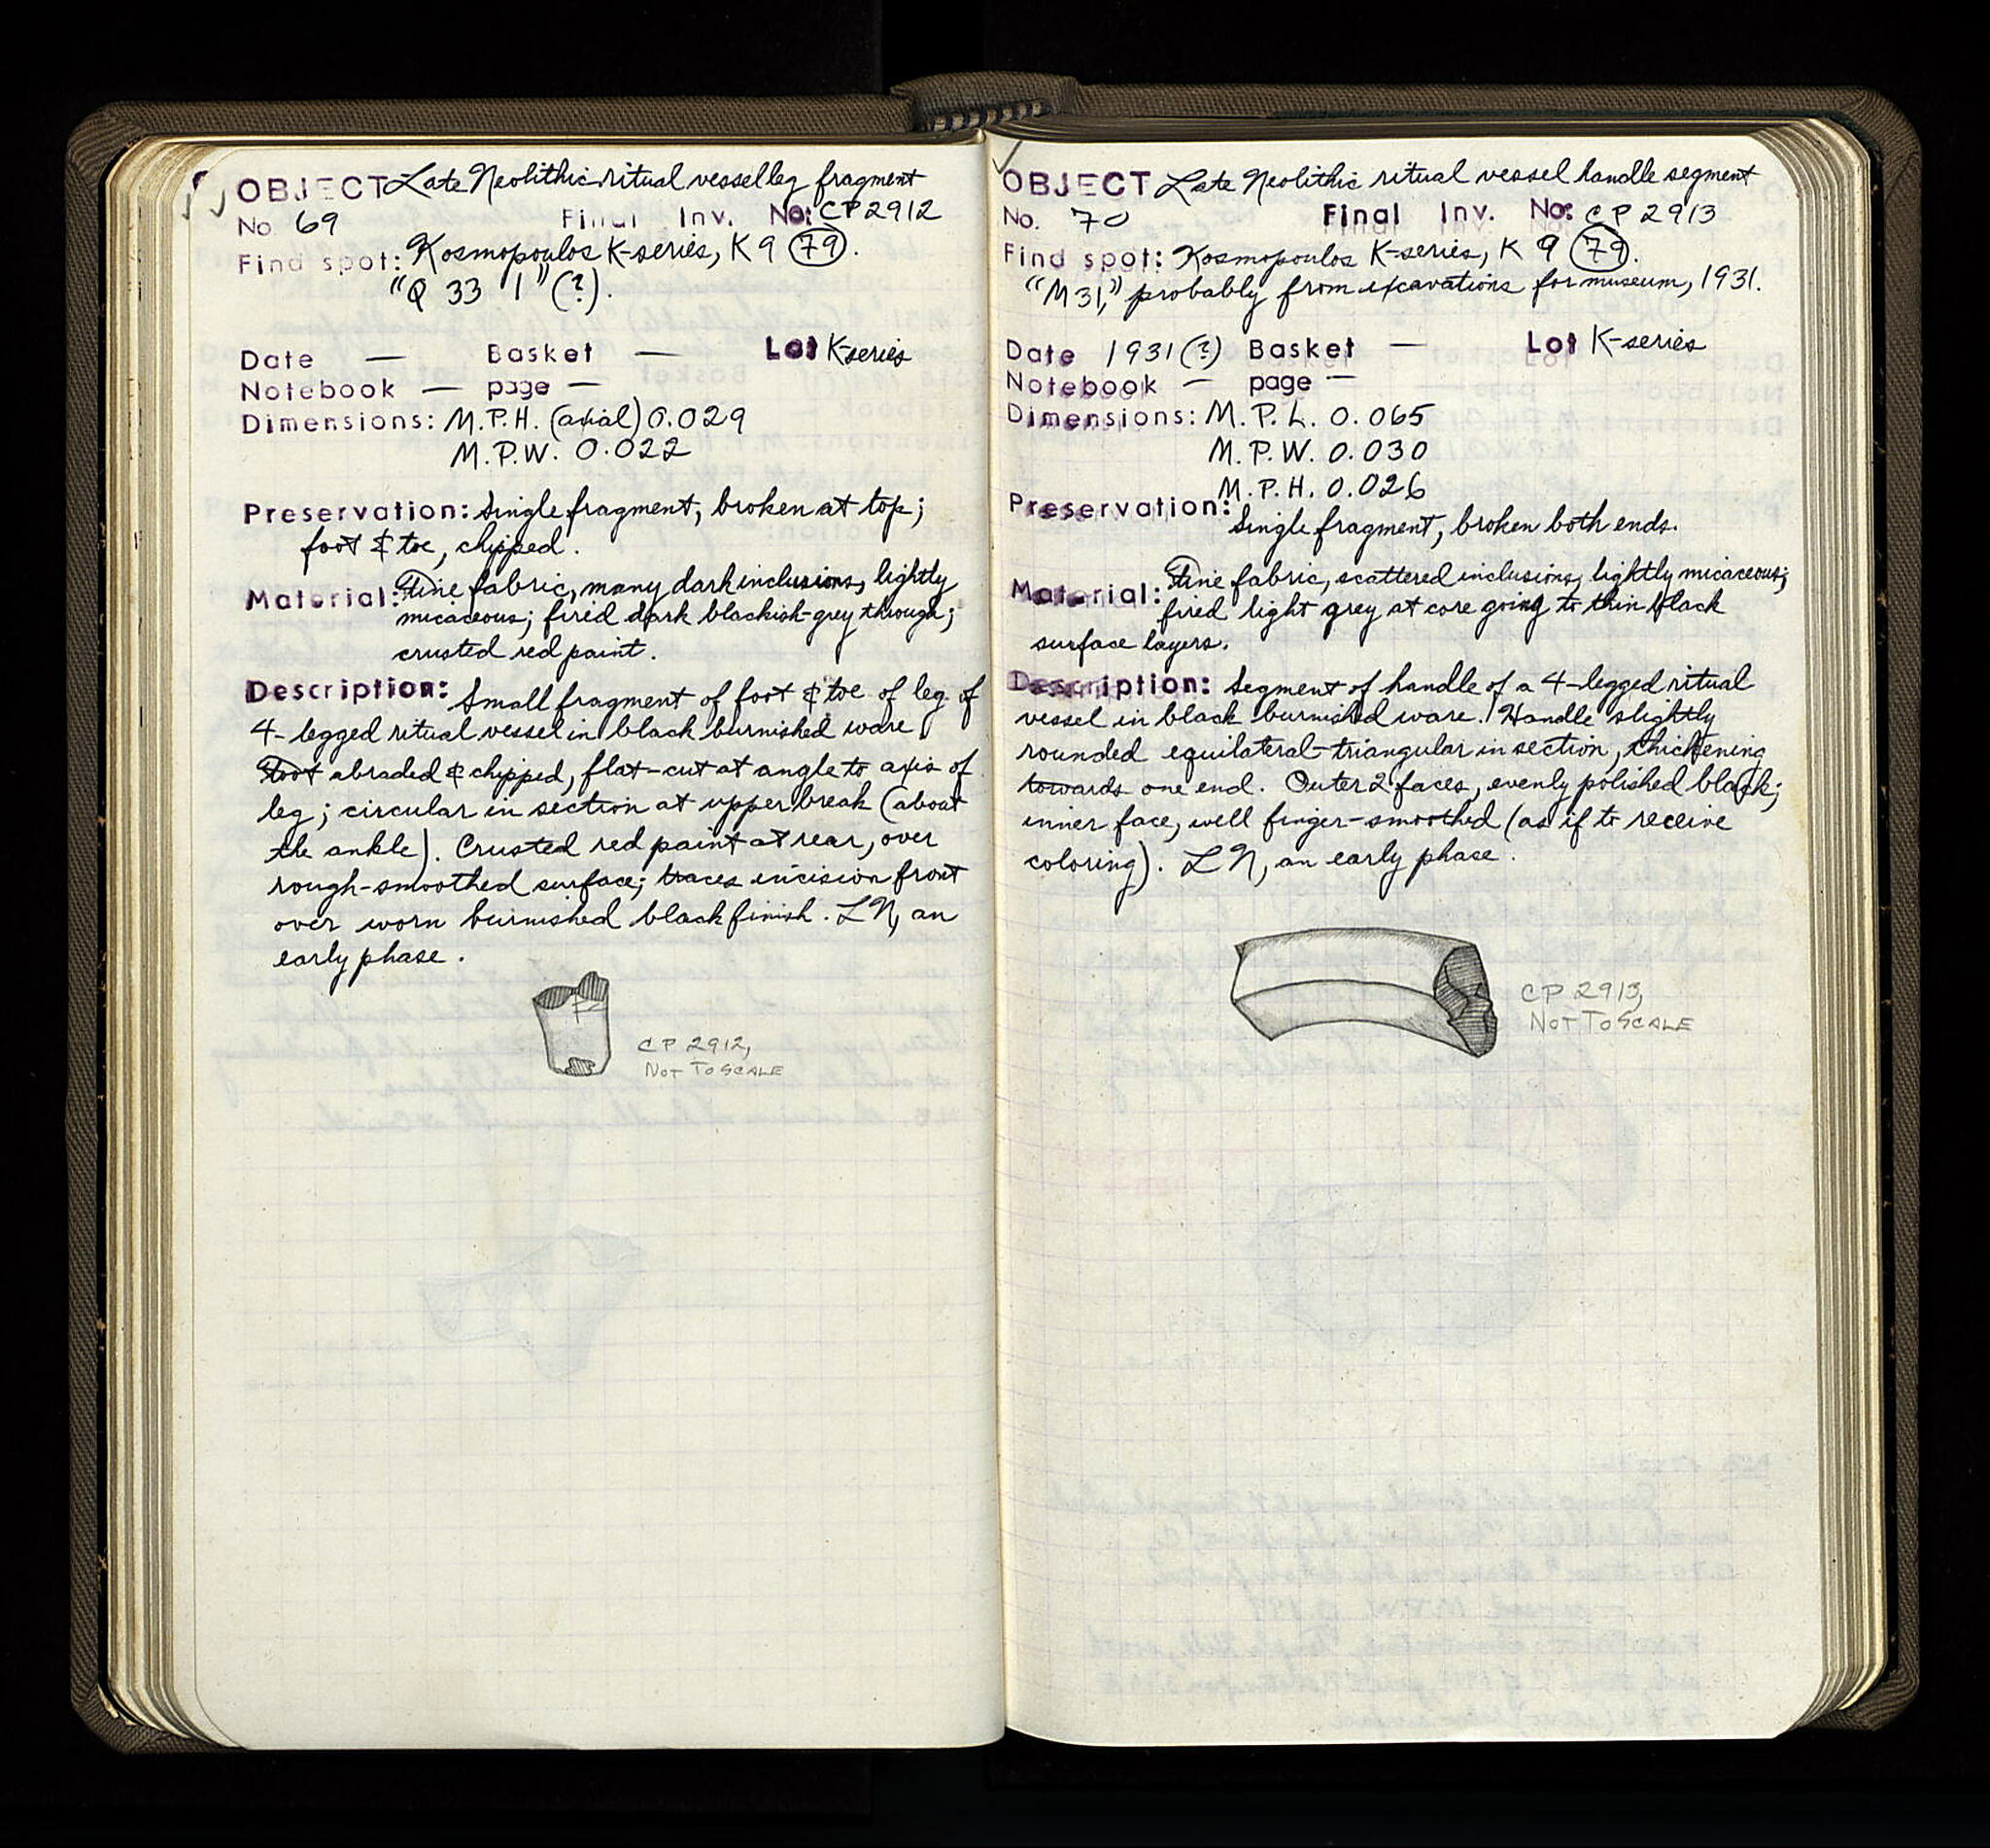 OBJECT Late Neolithic ritual vessel leg fragment
No 69 Final Inv. No: CP 2912
Find spot: Kosmopoulos K-series, K 9 (79).
"Q 33 1" (?).
Date — Basket — Lot K-series
Notebook — page —
Dimensions: M.P.H. (axial) 0.029
M.P.W. 0.022
Preservation: Single fragment, broken at top;
foot & toe, chipped.
Material: Fine fabric, many dark inclusions, lightly
micaceous; fired dark blackish-grey through;
crusted red paint.
Description: Small fragment of foot & toe of leg of
4-legged ritual vessel in black burnished ware.
Foot abraded & chipped, flat-cut at angle to axis of
leg; circular in section at upper break (about
the ankle). Crusted red paint at rear, over
rough-smoothed surface; traces incision front
over worn burnished black finish. LN, an
early phase.
CP 2912,
NOT TO SCALE
OBJECT Late Neolithic ritual vessel handle segment
No. 70 Final Inv. No: CP 2913
Find spot: Kosmopoulos K-series, K 9 (79).
"M31," probably from excavations for museum, 1931.
Date 1931(?) Basket — Lot K-series
Notebook — page —
Dimensions: M.P.L. 0.065
M.P.W. 0.030
M.P.H. 0.026
Preservation: Single fragment, broken both ends.
Material: Fine fabric, scattered inclusions, lightly micaceous;
fired light grey at core going to thin black
surface layers.
Description: Segment of handle of a 4-legged ritual
vessel in black burnished ware. Handle slightly
rounded equilateral-triangular in section, thickening
towards one end. Outer 2 faces, evenly polished black;
inner face, well finger-smoothed (as if to receive
coloring). LN, an early phase.
CP 2913,
NOT TO SCALE